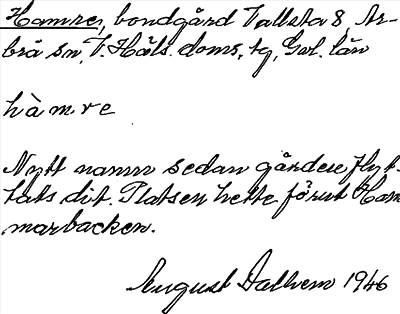 Hamre, bondgård Vallsta 8, Ar-
brå sn, V. Häls. doms. tg, Gvl. län
hàmre
Nytt namn sedan gården flyt-
tats dit. Platsen hette förut Ham
marbacken.
August Dalhem 1946